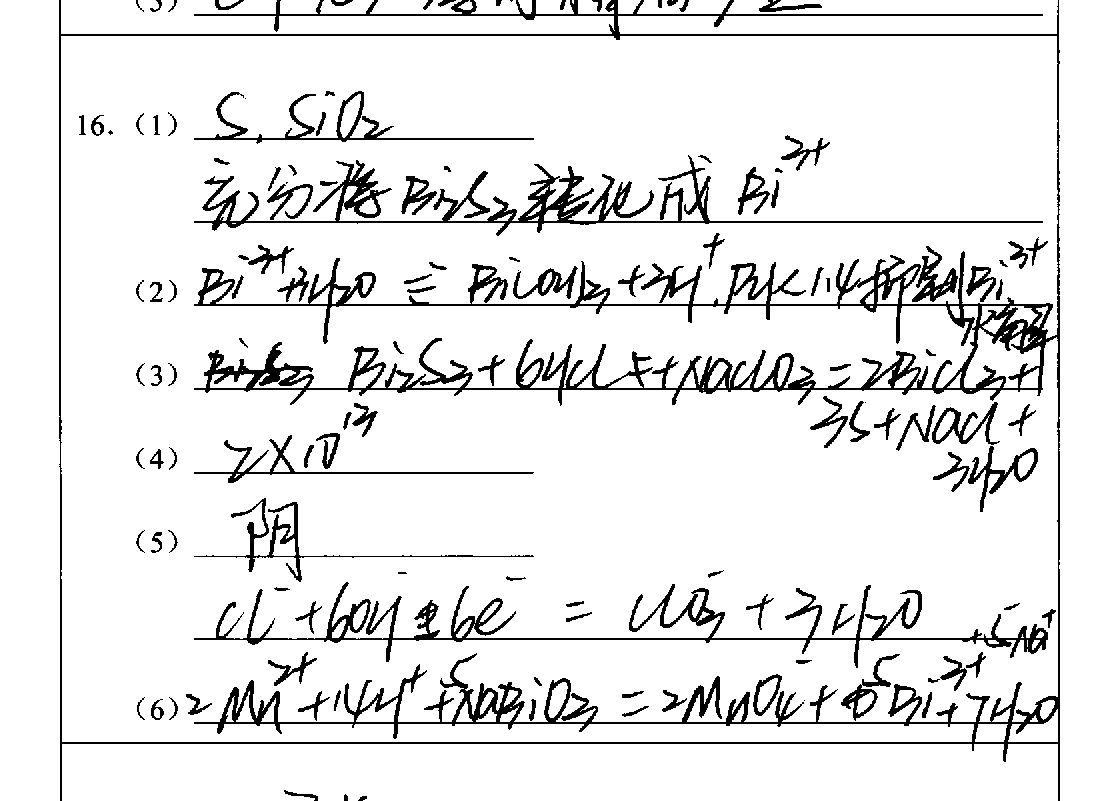 (3)
16. (1) S. SiO₂
充分将Bi₂S₃转化成 Bi³⁺
(2) Bi³⁺+3H₂O ⇌ Bi(OH)₃+3H⁺. PH<1.4抑制Bi³⁺
水解
(3) Bi₂S₃+6HCl+NaClO₃=2BiCl₃+
3S+NaCl+
3H₂O
(4) 2×10¹³
(5) 阴
Cl⁻+6OH⁻-6e⁻ = ClO₃⁻+3H₂O
+5Na⁺
(6) 2Mn²⁺+14H⁺+5NaBiO₃=2MnO₄⁻+5Bi³⁺+7H₂O